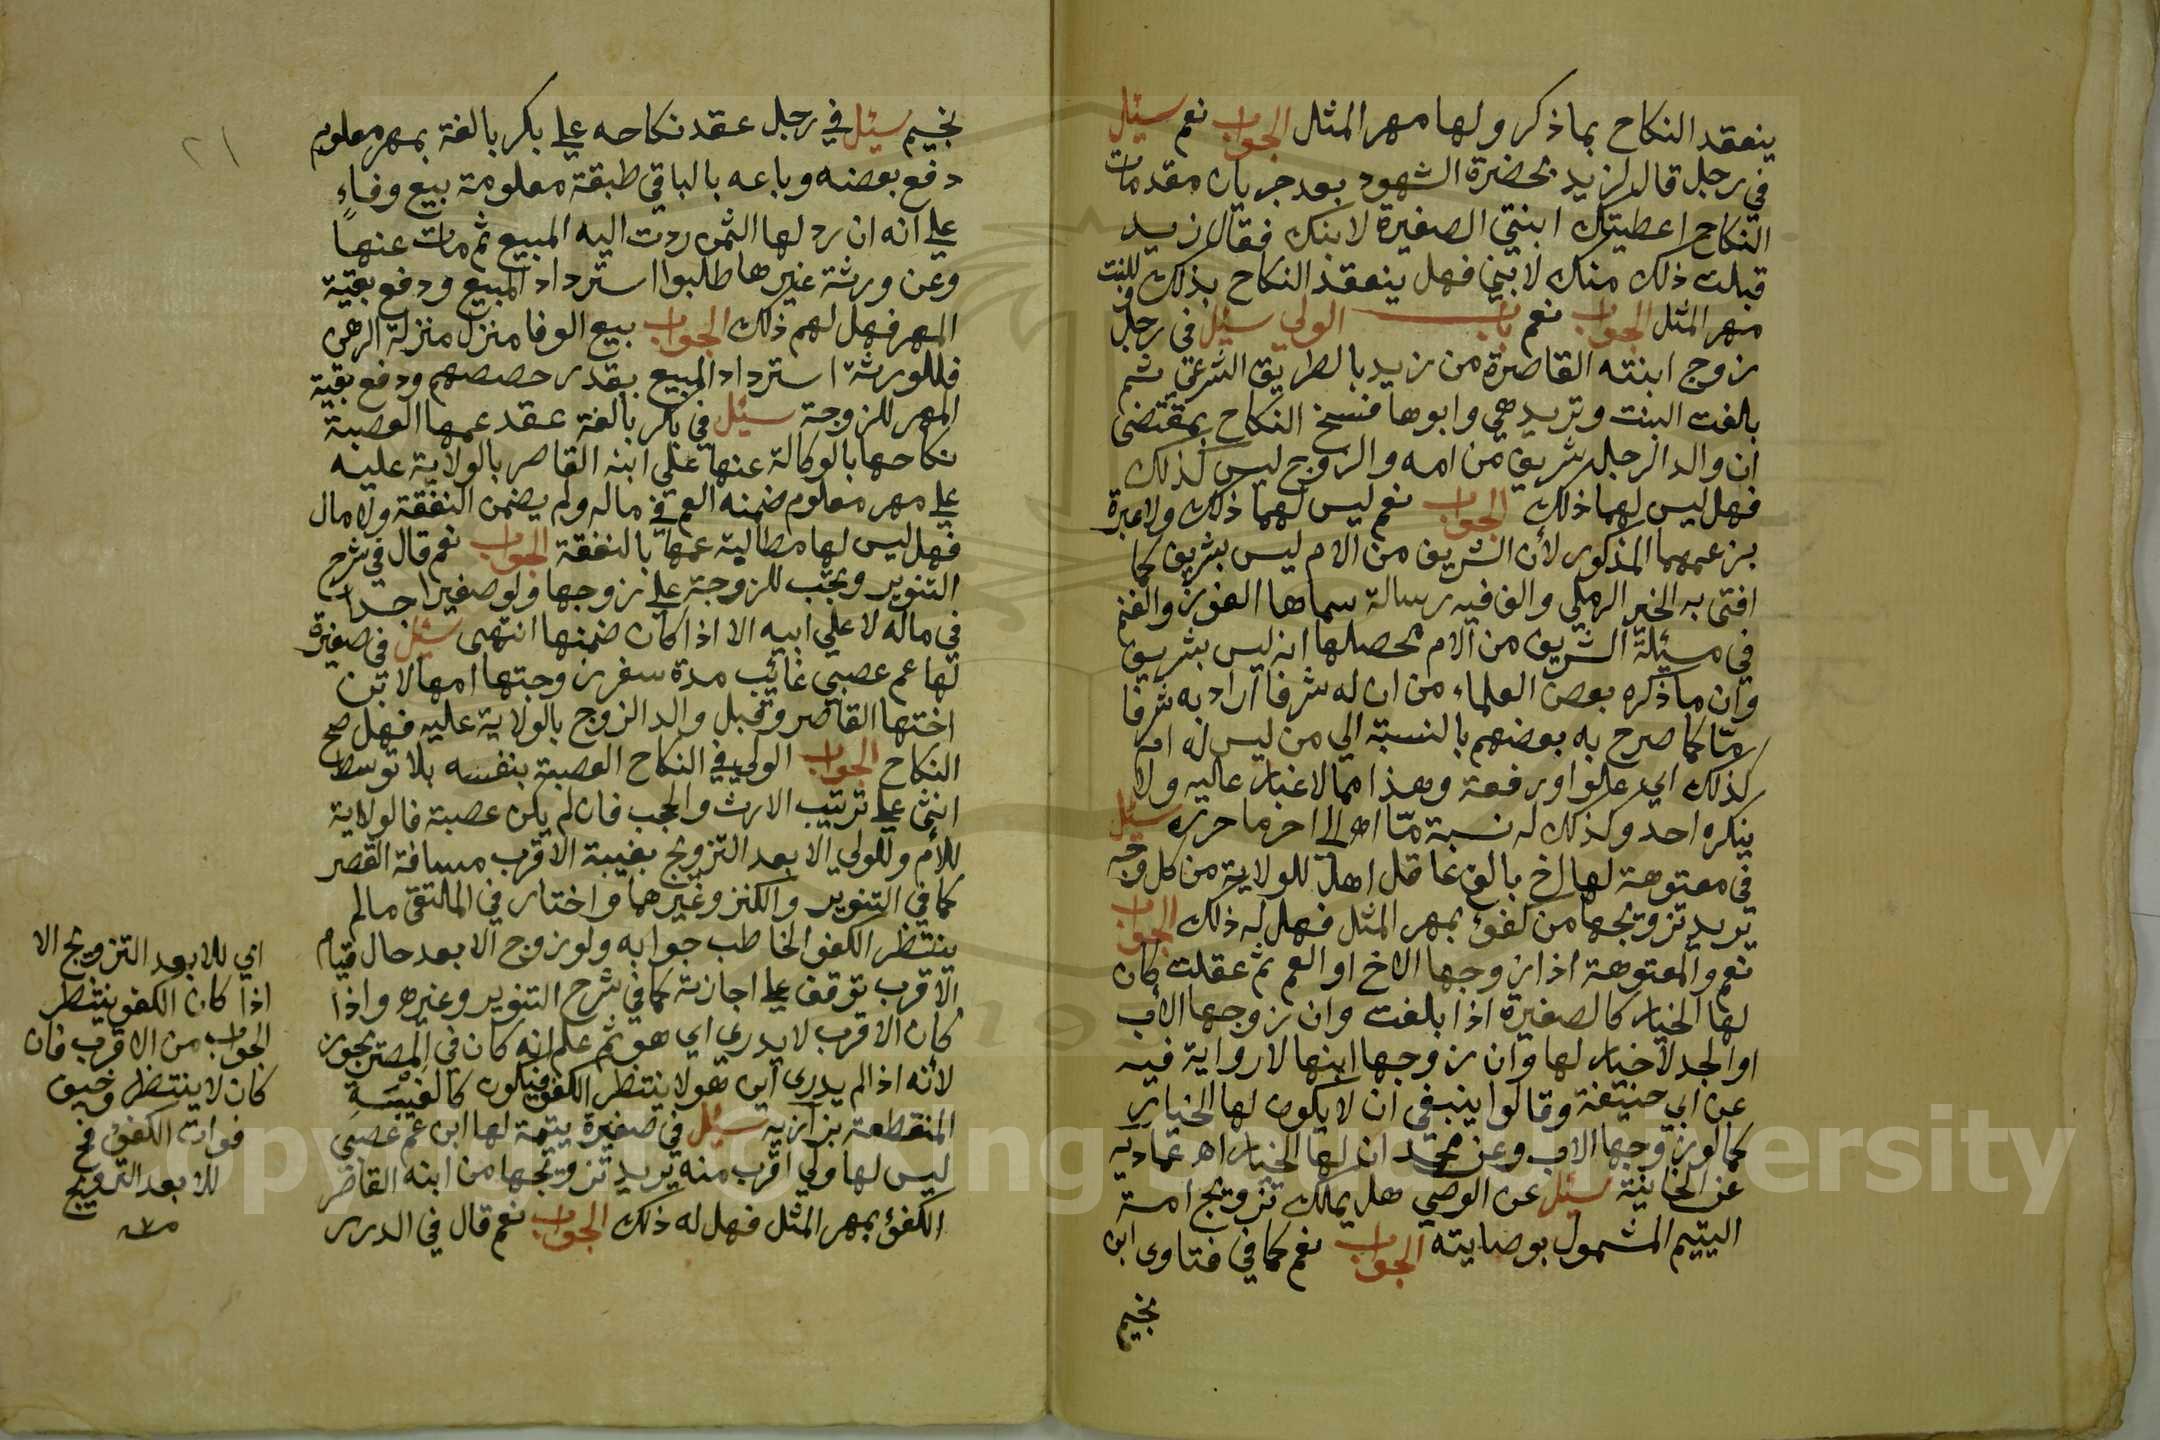 ينعقد النكاح بما ذكر ولها مهر المثل الجواب نعم سئل
في رجل قال لزيد بحضرة الشهود بعد جريان مقدمات
النكاح اعطيتك ابنتي الصغيرة لابنك فقال زيد
قبلت ذلك منك لابني فهل ينعقد النكاح بذلك للبنت
مهر المثل الجواب نعم باب الولي سئل في رجل
زوج ابنته القاصرة من زيد بالطريق الشرعي ثم
بلغت البنت وتريد هي وابوها فسخ النكاح بمقتضى
ان والد الرجل شريف من امه والزوج ليس كذلك
فهل ليس لهما ذلك الجواب نعم ليس لهما ذلك ولا عبرة
بزعمهما المذكور لأن الشريف من الام ليس بشريف كما
افتى به الخير الرملي والف فيه رسالة سماها الفوز والغنم
في مسئلة الشريف من الام محصلها انه ليس بشريف
وان ما ذكره بعض العلماء من ان له شرفا اراد به شرفا
ما كما صرح به بعضهم بالنسبة الي من ليس له ام
كذلك اي علوا ورفعة وهذا مما لا غبار عاليه ولا
ينكره احد وكذلك له نسبة ما اهـ الى اخر ما حرره سئل
في معتوهة لها اخ بالغ عاقل اهل للولاية من كل وجه
تريد تزويجها من كفؤ بمهر المثل فهل له ذلك الجواب
نعم والمعتوهة اذا زوجها الاخ او العم ثم عقلت كان
لها الخيار كالصغيرة اذا بلغت وان زوجها الاب
او الجد لا خيار لها وان زوجها ابنها لا رواية فيه
عن ابي حنيفة وقالوا ينبغي ان لا يكون لها الخيار
كما لو زوجها الاب وعن محمد ان لها الخيار اهـ عماديه
عن الخانية سئل عن الوصي هل يملك تزويج امة
اليتيم المشمول بوصايته الجواب نعم كما في فتاوى ابن
نجيم
٢١
نجيم سئل في رجل عقد نكاحه علي بكر بالغة بمهر معلوم
دفع بعضه وباعه بالباقي طبقة معلومة بيع وفاءٍ
علي انه ان رد لها الثمن ردت اليه المبيع ثم مات عنها
وعن ورثة غيرها طلبوا استرداد المبيع ودفع بقية
المهر فهل لهم ذلك الجواب بيع الوفا منزل منزلة الرهن
فللورثة استرداد المبيع بقدر حصصهم ودفع بقية
المهر للزوجة سئل في بكر بالغة عقد عمها العصبة
نكاحها بالوكالة عنها علي ابنه القاصر بالولاية عليه
علي مهر معلوم ضمنه العم في ماله ولم يضمن النفقة ولا مال
فهل ليس لها مطالبة عمها بالنفقة الجواب نعم قال في شرح
التنوير وتجب للزوجة علي زوجها ولو صغيرا جدا
في ماله لا علي ابيه الا اذا كان ضمنها انتهى سئل في صغيرة
لها عم عصبي غائب مدة سفر زوجتها امها لابن
اختها القاصر وقبل والد الزوج بالولاية عليه فهل صح
النكاح الجواب الولي في النكاح العصبة بنفسه بلا توسط
انثى علي ترتيب الارث والحجب فان لم يكن عصبة فالولاية
للأم وللولي الابعد التزويج بغيبة الاقرب مسافة القصر
كما في التنوير والكنز وغيرهما واختار في الملتقى ما لم
ينتظر الكفو الخاطب جوابه ولو زوج الابعد حال قيام
الاقرب توقف علي اجازته كما في شرح التنوير وغيره واذا
كان الاقرب لا يدري اي هو ثم علم انه كان في المصر يجوز
لأنه اذا لم يدرى اين هو لا ينتظر الكفو فيكون كالغيبة
المنقطعة بزازيه سئل في صغيرة يتيمة لها ابن عم عصبي
ليس لها ولي اقرب منه يريد تزويجها من ابنه القاصر
الكفؤ بمهر المثل فهل له ذلك الجواب نعم قال في الدرر
اي للابعد التزويج الا
اذا كان الكفو ينتظر
الجواب من الاقرب فان
كان لا ينتظر وخيف
فوات الكفؤ صح
للابعد التزويج
منه
Copyright © King Saud University